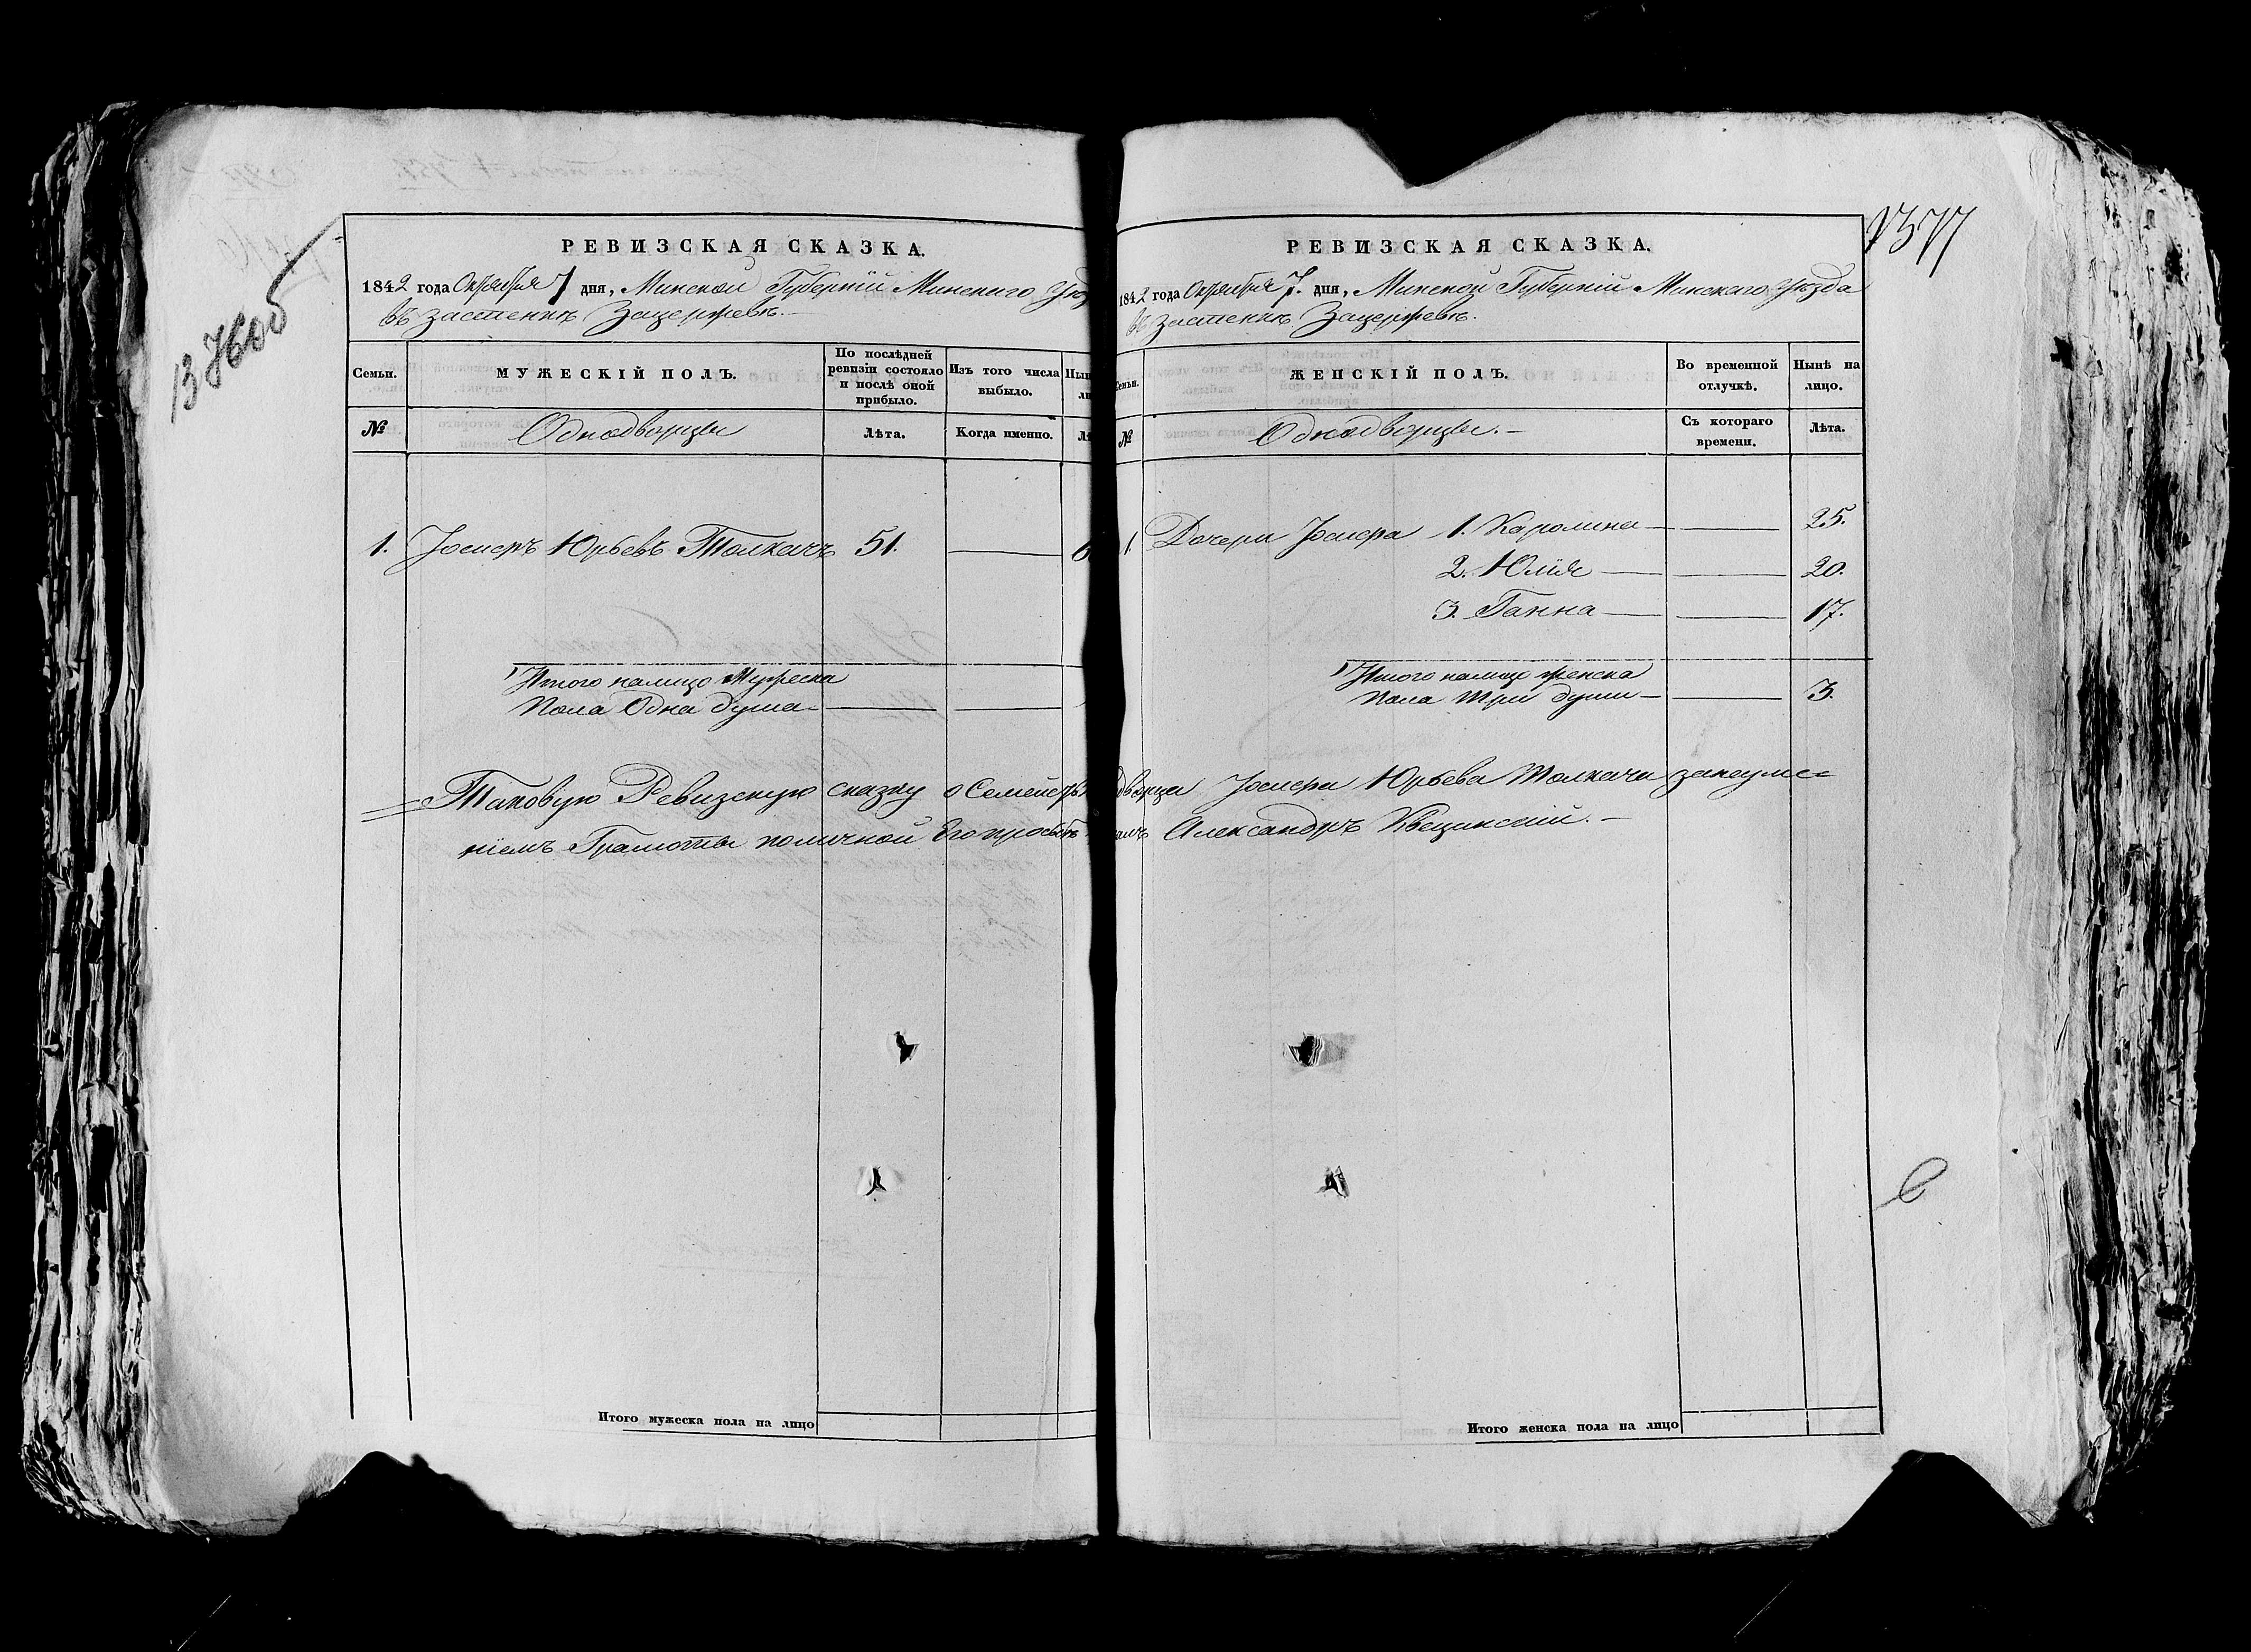 1376об
РЕВИЗСКАЯ СКАЗКА.
1842 года Октября 7 дня, Минской Губерніи Минскаго Уѣз
въ застенкѣ Зацержевѣ.
Семьи.
МУЖЕСКІЙ ПОЛЪ.
По послѣдней ревизіи состояло и послѣ оной прибыло.
Изъ того числа выбыло.
№
Однодворцы
Лѣта.
Когда именно.
1. Іосифъ Юрьевъ Толкачъ 51.
Итого налицо Мужеска
Пола Одна душа
Таковую Ревизскую сказку о Семейств
ніемъ Грамоты по личной Его прозьбѣ
Итого мужеска пола на лицо
1377
РЕВИЗСКАЯ СКАЗКА.
1842 года Октября 7. дня, Минской Губерніи Минскаго Уѣзда
въ застенкѣ Зацержевѣ.
Семьи.
ЖЕНСКІЙ ПОЛЪ.
Во временной отлучкѣ.
Нынѣ на лицо.
№
Однодворцы.
Съ котораго времени.
Лѣта.
1. Дочери Іосифа 1. Каролина 25.
2. Юлія 20.
3. Ганна 17.
Итого налицо женска
Пола три души 3.
дворца Іосифа Юрьева Толкача занеуме=
Александръ Квецинскій.
Итого женска пола на лицо